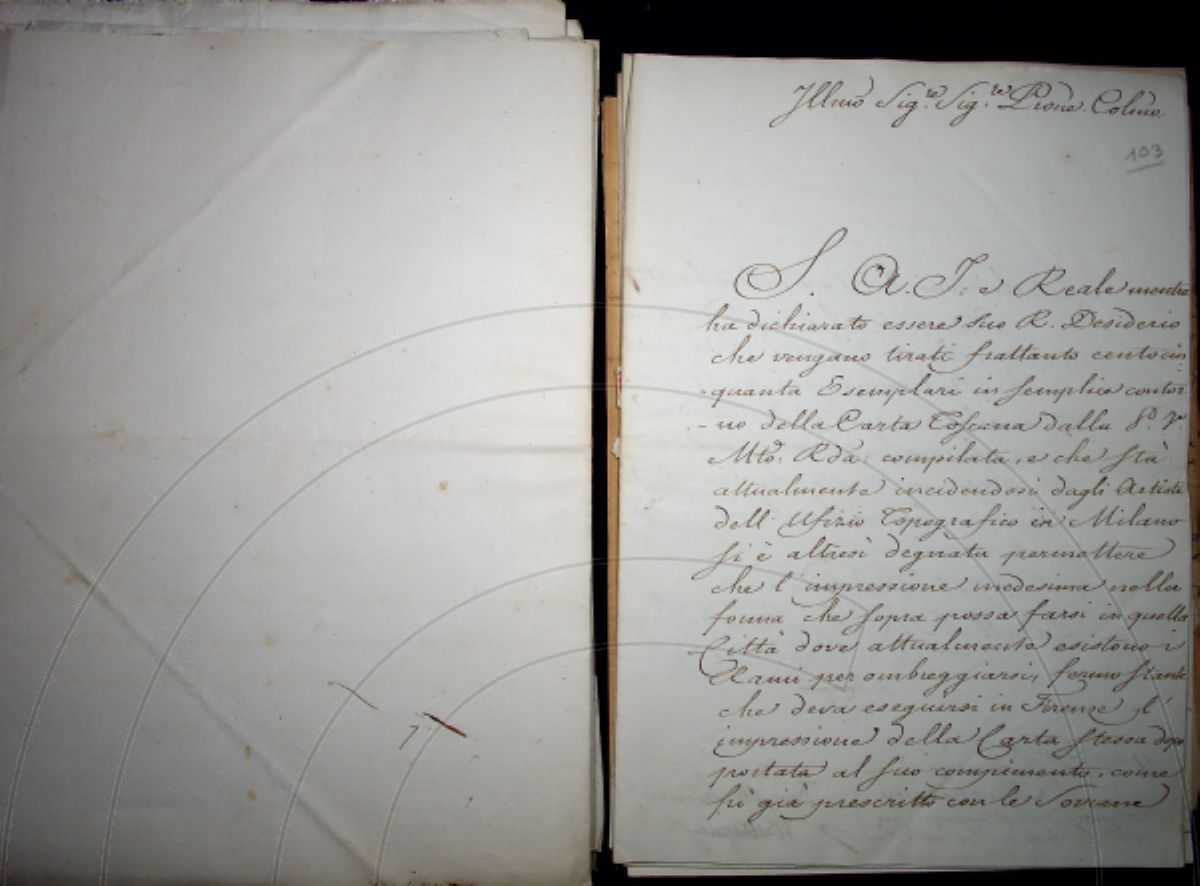 Illmo Sig.re Sig.re Prone. Colmo.
103
S. A. I. e Reale mentre
ha dichiarato essere suo R. Desiderio
che vengano tirati frattanto centocin
-quanta Esemplari in semplice contor
-no della Carta Toscana dalla P.
compilata, e che stà
attualmente incidendosi dagli Artisti
dell'Ufizio Topografico in Milano
si è altresì degnata permettere
che l'impressione medesima nella
forma che sopra possa farsi in quella
Città dove attualmente esistono i
Rami per ombreggiarsi, fermo stante
che deva eseguirsi in Firenze l'
impressione della Carta stessa dopo
portata al suo compimento, come
fù già prescritto con le Sovrane